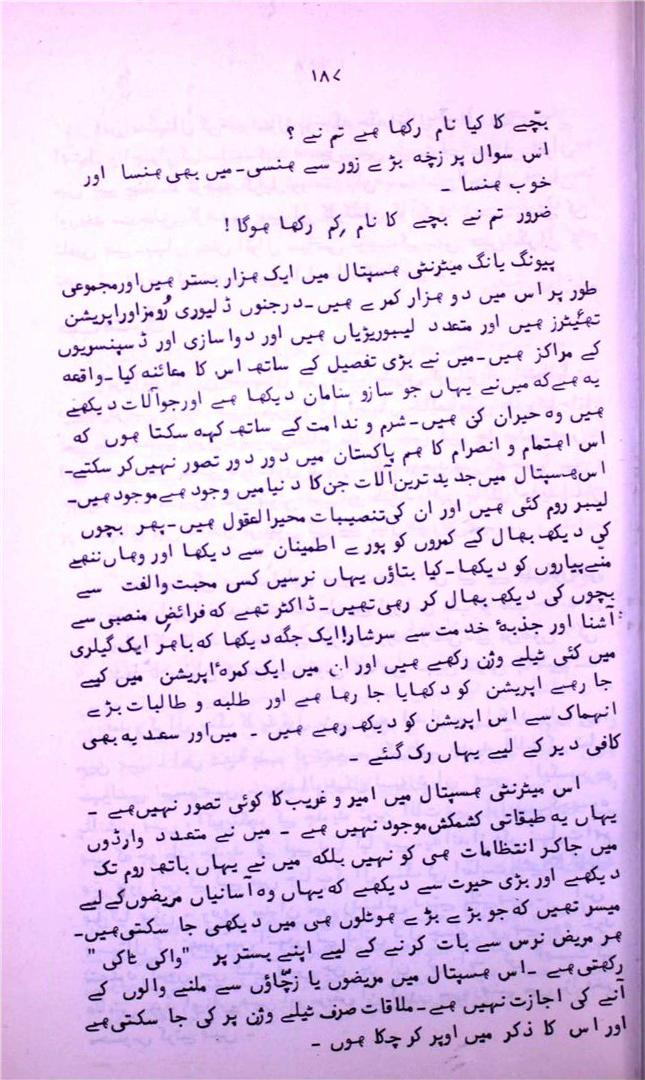 ۱۸۷
بچّے کا کیا نام رکھا ھے تم نے ؟
اس سوال پر زچّہ بڑے زور سے ھنسی۔میں بھی ھنسا اور
خوب ھنسا ۔
ضرور تم نے بچے کا نام کِم رکھا ھوگا!
پیونگ یانگ میٹرنٹی ھسپتال میں ایک ھزار بستر ھیں اور مجموعی
طور پر اس میں دو ھزار کمرے ھیں۔درجنوں ڈلیوری رُومز اور اپریشن
تھئیٹرز ھیں اور متعدد لیبوریڑیاں ھیں اور دواسازی اور ڈسپنسریوں
کے مراکز ھیں۔میں نے بڑی تفصیل کے ساتھ اس کا معائنہ کیا۔واقعہ
یہ ھے کہ میں نے یہاں جو سازو سامان دیکھا ھے اور جو آلات دیکھے
ھیں وہ حیران کن ھیں۔شرم و ندامت کے ساتھ کہہ سکتا ھوں کہ
اس اھتمام و انصرام کا ھم پاکستان میں دور دور تصور نہیں کر سکتے۔
اس ھسپتال میں جدید ترین آلات جن کا دنیا میں وجود ھے موجود ھیں۔
لیبر روم کئی ھیں اور ان کی تنصیبات محیرالعقول ھیں۔پھر بچوں
کی دیکھ بھال کے کمروں کو پورے اطمینان سے دیکھا اور وھاں ننھے
منّے پیاروں کو دیکھا۔کیا بتاؤں یہاں نرسیں کس محبت والفت سے
بچوں کی دیکھ بھال کر رھی تھیں۔ڈاکٹر تھے کہ فرائضِ منصبی سے
آشنا اور جذبۂ خدمت سے سرشار!ایک جگہ دیکھا کہ باھر ایک گیلری
میں کئی ٹیلے وژن رکھے ھیں اور ان میں ایک کمرۂ اپریشن میں کیے
جا رھے اپریشن کو دکھایا جا رھا ھے اور طلبہ و طالبات بڑے
انہماک سے اس اپریشن کو دیکھ رھے ھیں ۔ میں اور سعدیہ بھی
کافی دیر کے لیے یہاں رک گئے ۔
اس میٹرنٹی ھسپتال میں امیر و غریب کا کوئی تصور نہیں ھے ۔
یہاں یہ طبقاتی کشمکش موجود نہیں ھے ۔ میں نے متعدد وارڈوں
میں جاکر انتظامات ھی کو نہیں بلکہ میں نے یہاں باتھ روم تک
دیکھے اور بڑی حیرت سے دیکھے کہ یہاں وہ آسانیاں مریضوں کے لیے
میسر تھیں کہ جو بڑے بڑے ھوٹلوں ھی میں دیکھی جا سکتی ھیں۔
ھر مریض نرس سے بات کرنے کے لیے اپنے بستر پر "واکی ٹاکی"
رکھتی ھے ۔اس ھسپتال میں مریضوں یا زچّاؤں سے ملنے والوں کے
آنے کی اجازت نہیں ھے۔ملاقات صرف ٹیلے وژن پر کی جا سکتی ھے
اور اس کا ذکر میں اوپر کر چکا ھوں ۔